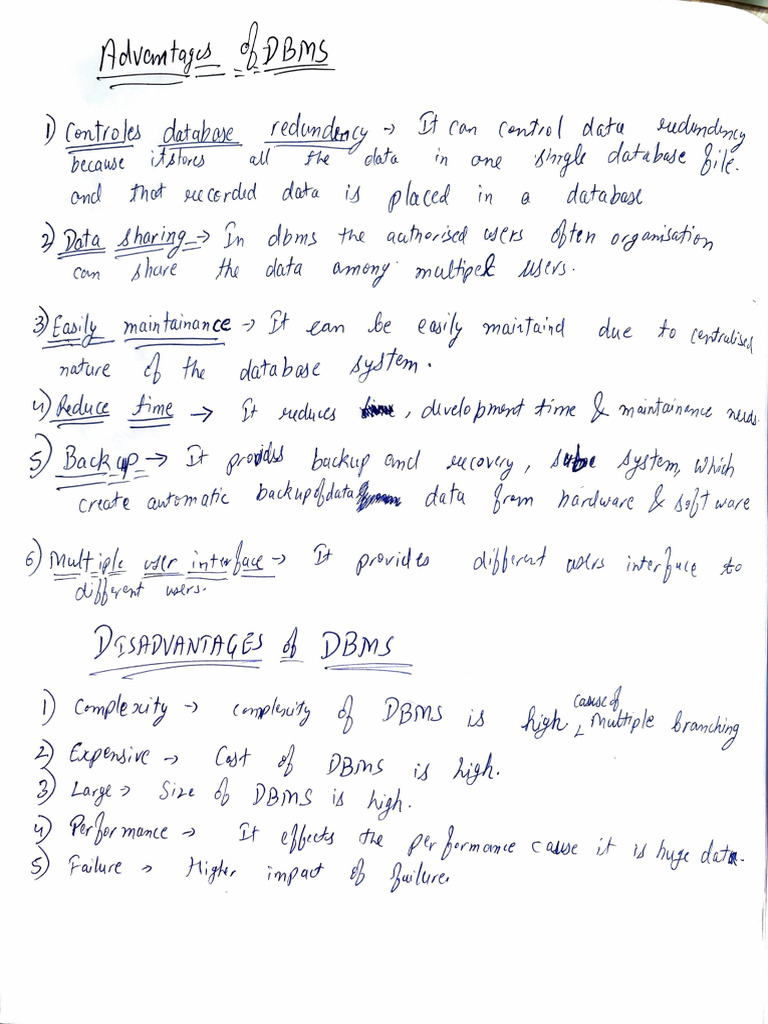 Advantages of DBMS
1) Controles database redundency → It can control data redundency
because itstores all the data in one single database file.
and that recorded data is placed in a database
2) Data sharing → In dbms the authorised users often organisation
can share the data among multiple users.
3) Easily maintainance → It can be easily maintaind due to centralised
nature of the database system.
4) Reduce time → It reduces , development time & maintainence needs.
5) Backup → It provides backup and recovery, system, which
create automatic backup of data data from hardware & software
6) Multiple user interface → It provides different users interface to
different users.
DISADVANTAGES of DBMS
1) Complexity → complexity of DBMS is high cause of multiple branching
2) Expensive → Cost of DBMS is high.
3) Large → Size of DBMS is high.
4) Performance → It effects the performance cause it is huge data.
5) Failure → Higher impact of failure.